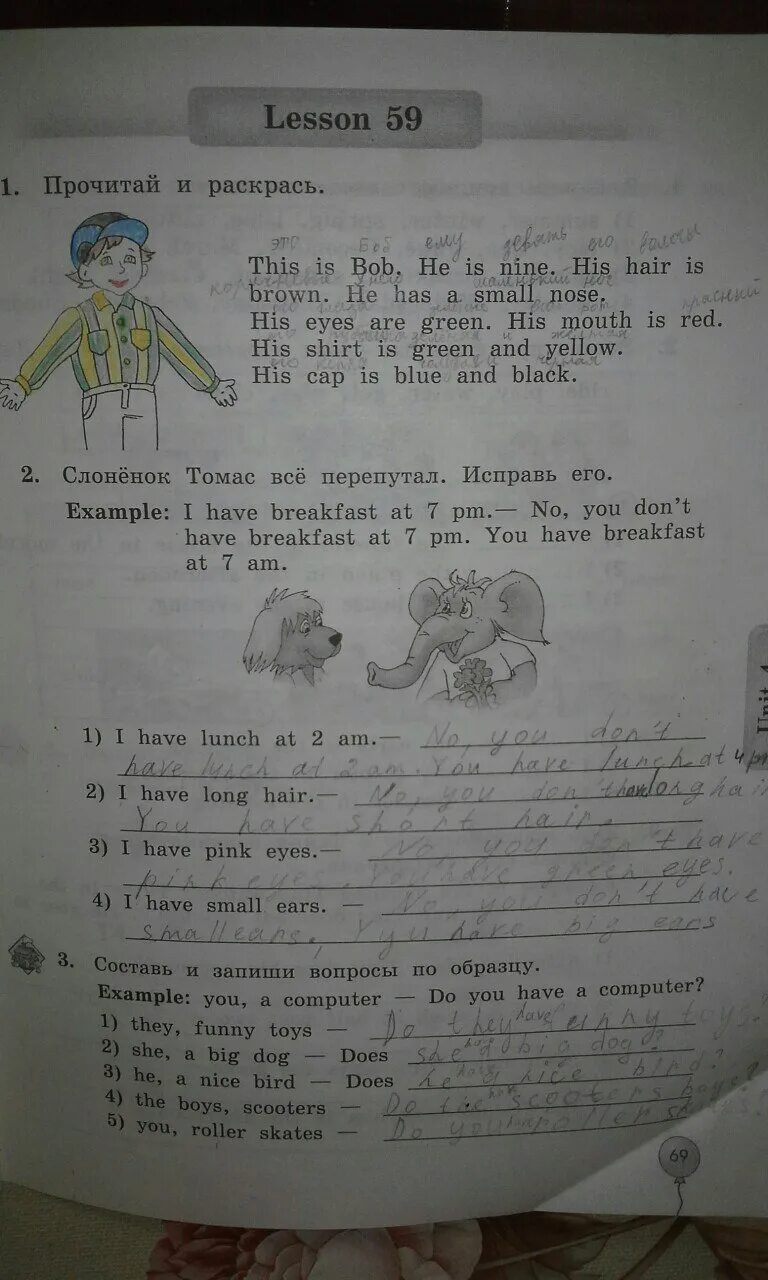 Lesson 59
1. Прочитай и раскрась.
это Боб ему девять его волосы
This is Bob. He is nine. His hair is
brown. He has a small nose.
красный
His eyes are green. His mouth is red.
His shirt is green and yellow.
His cap is blue and black.
2. Слонёнок Томас всё перепутал. Исправь его.
Example: I have breakfast at 7 pm.— No, you don't
have breakfast at 7 pm. You have breakfast
at 7 am.
Unit 4
1) I have lunch at 2 am.— No, you don't
have lunch at 2 am. You have lunch at 4 pm
2) I have long hair.— No, you don't have long hair
You have short hair.
3) I have pink eyes.— No you don't have
pink eyes. You have green eyes.
4) I have small ears. — No, you don't have
small ears. You have big ears
3. Составь и запиши вопросы по образцу.
Example: you, a computer — Do you have a computer?
1) they, funny toys — Do they have funny toys?
2) she, a big dog — Does she have a big dog?
3) he, a nice bird — Does he have a nice bird?
4) the boys, scooters — Do the scooters
5) you, roller skates — Do you have roller
69